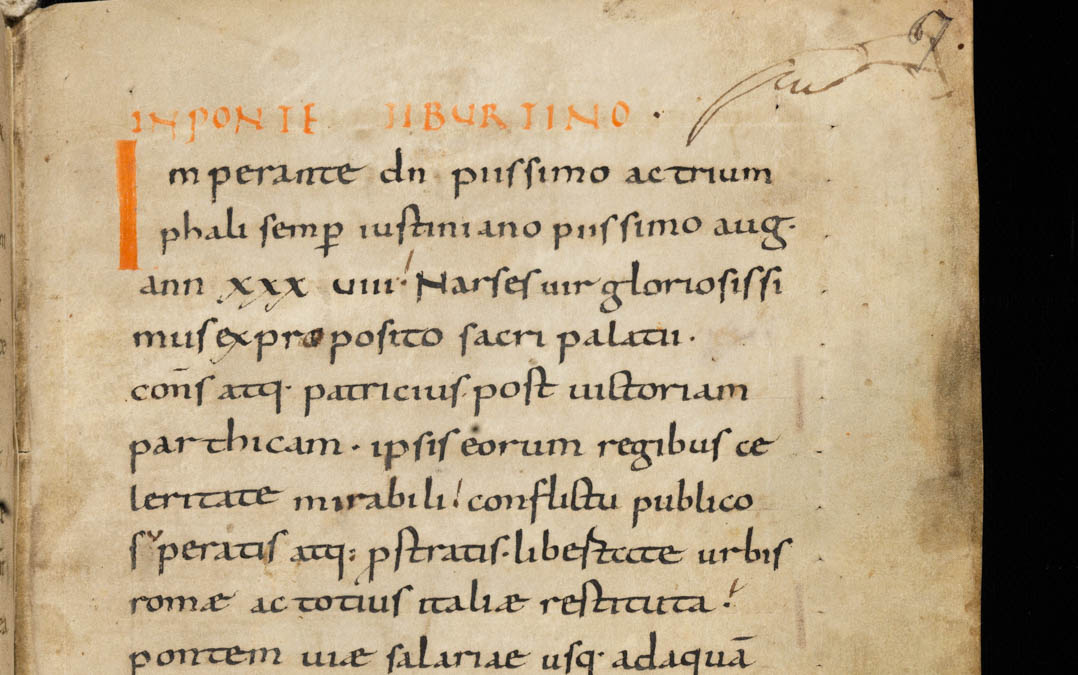 IN PONTE TIBURTINO ·
Imperante dn̄ piissimo ac trium
phali semp̄ iustiniano piissimo aug·
ann xxx uiii· Narses uir gloriosissi
mus ex proposito sacri palatii ·
con̄s atq· patricius· post uictoriam
parthicam · ipsis eorum regibus ce
leritate mirabili! conflictu publico
superatis atq: ꝓstratis· libertate urbis
romæ ac totius italiæ restituta!
pontem uiæ salariae usq· ad aquā